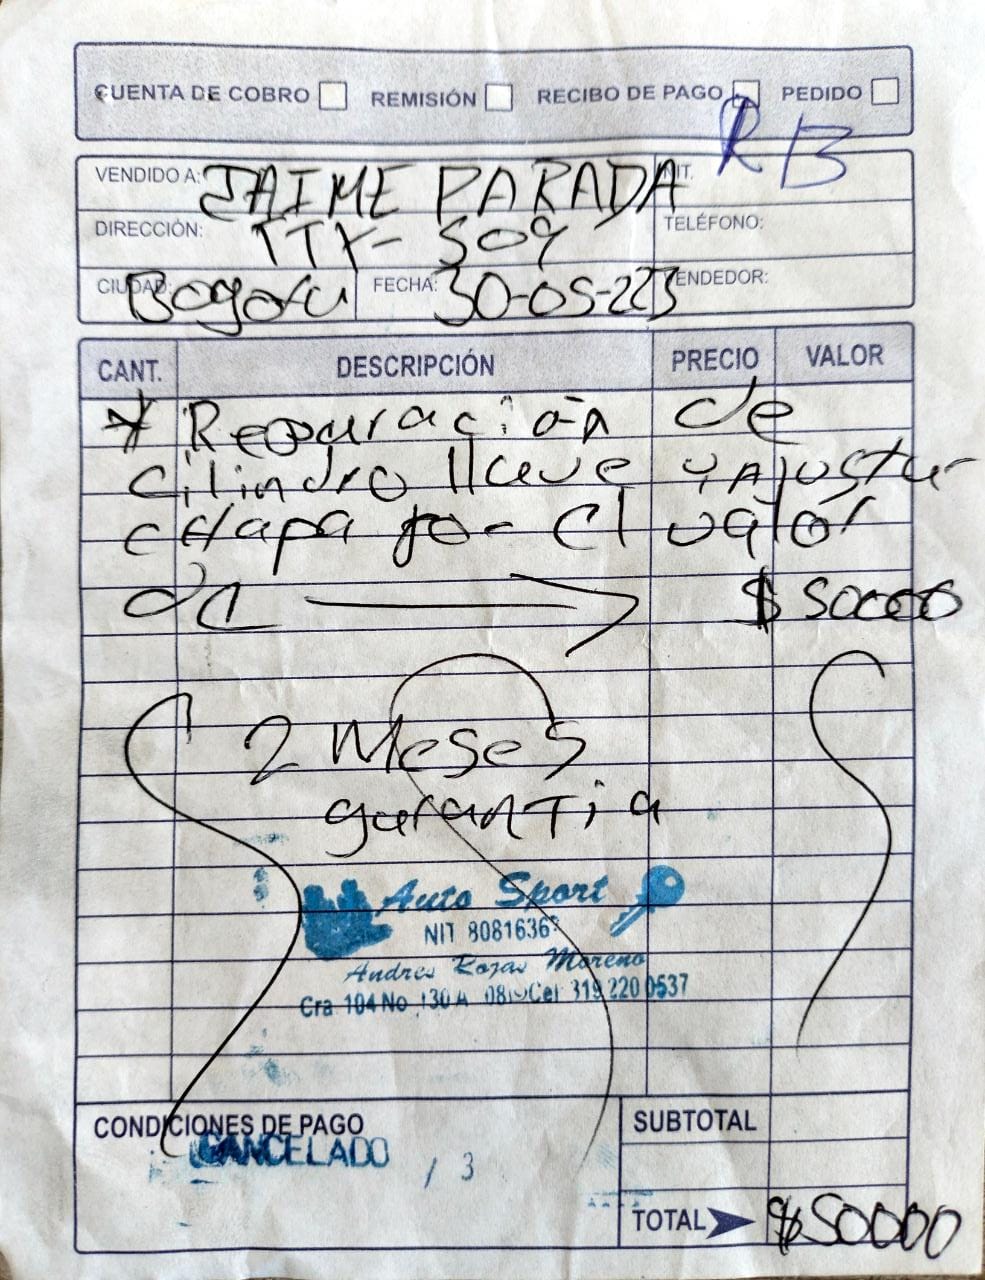 CUENTA DE COBRO REMISIÓN RECIBO DE PAGO PEDIDO
R B
VENDIDO A: JAIME PARADA NIT.
DIRECCIÓN: TTX- 509 TELÉFONO:
CIUDAD: Bogota FECHA: 30-05-223 VENDEDOR:
CANT. DESCRIPCIÓN PRECIO VALOR
* Reparación de
cilindro llave y Ajustar
chapa por el valor
de $ 50000
2 Meses
garantia
Auto Sport
NIT 8081636
Andres Rojas Moreno
Cra 104 No 130 A 08 Cel 319 220 0537
CONDICIONES DE PAGO SUBTOTAL
CANCELADO
/ 3
TOTAL $50000